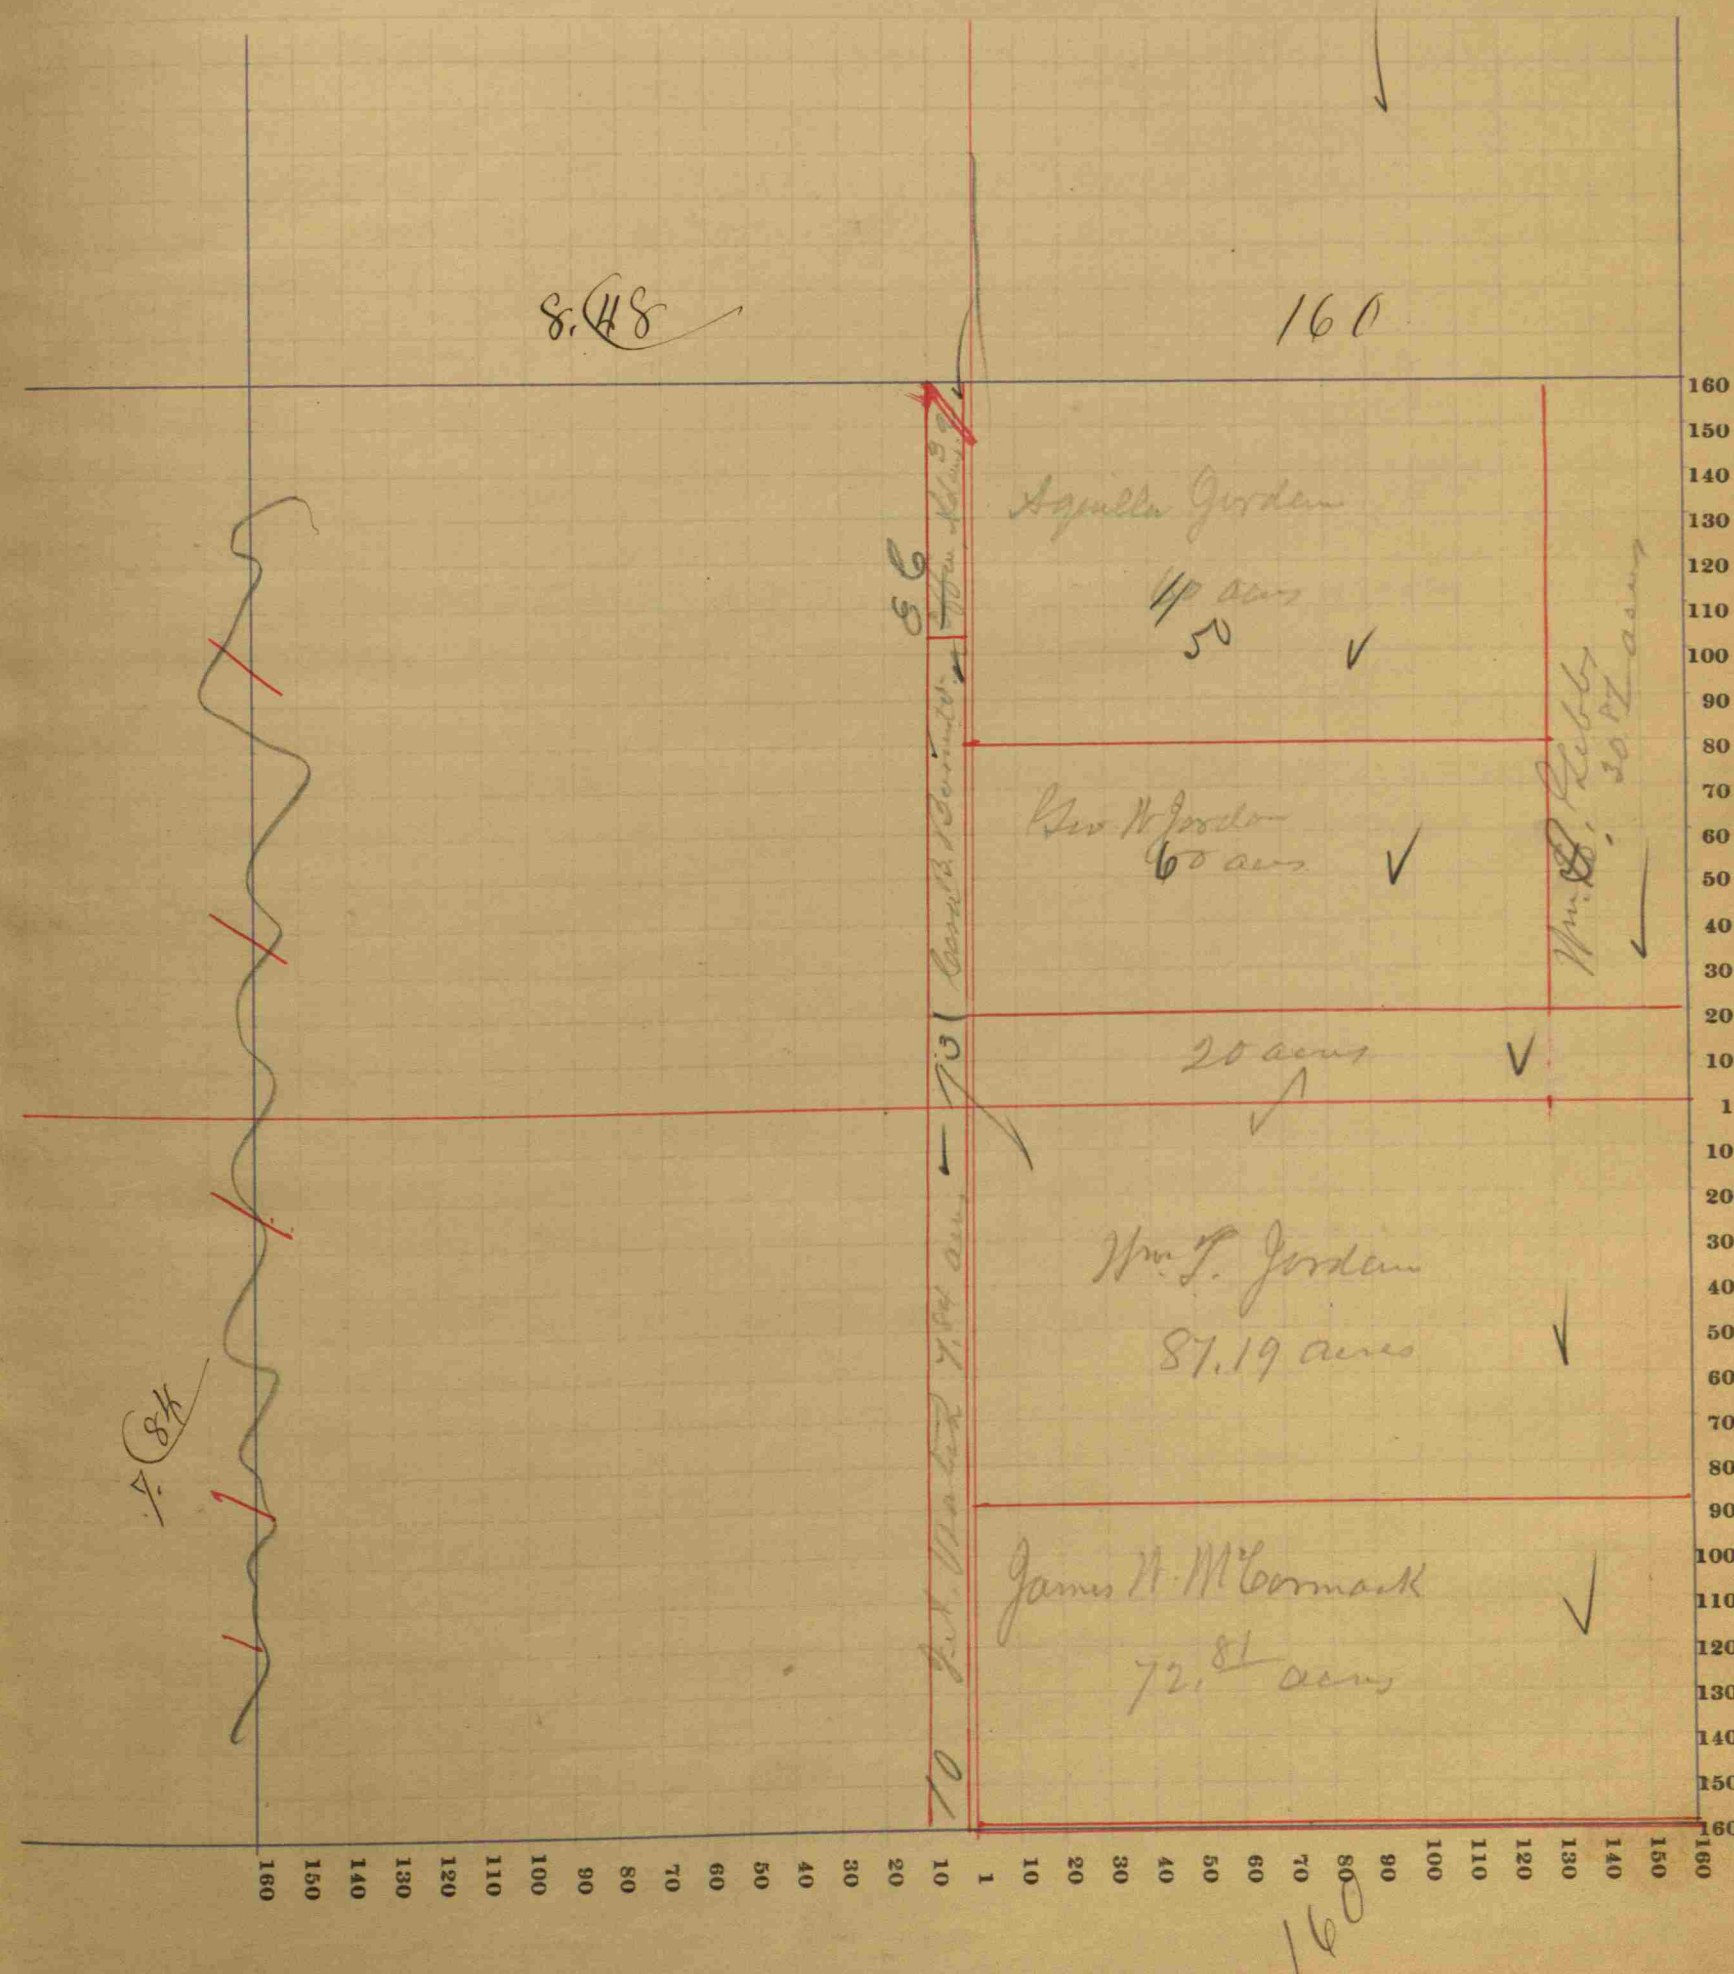 8.48
160
Aquilla Gordan
40 acres
50
Geo W Jordan
60 acres
20 acres
Wm. T. Jordan
87.19 acres
James W. McCormack
72.81 acres
Wm.
30.
acres
7.84 acres
10
7.84
160
160
150
140
130
120
110
100
90
80
70
60
50
40
30
20
10
1
10
20
30
40
50
60
70
80
90
100
110
120
130
140
150
160
160
150
140
130
120
110
100
90
80
70
60
50
40
30
20
10
1
10
20
30
40
50
60
70
80
90
100
110
120
130
140
150
160